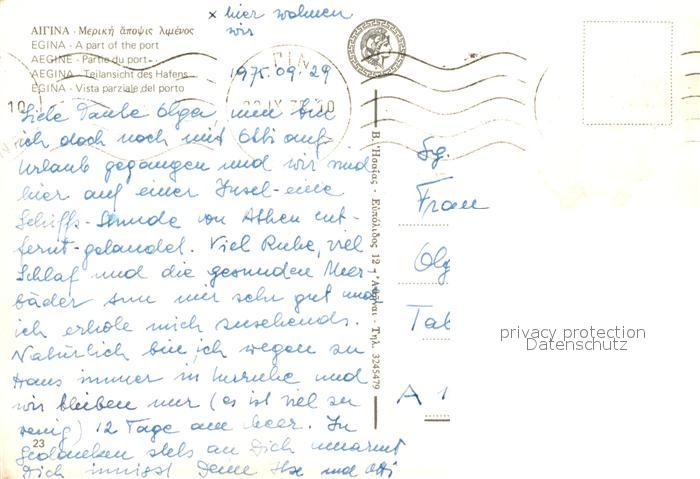 x hier wohnen
wir
ΑΙΓΙΝΑ - Μερική ἄποψις λιμένος
EGINA - A part of the port
AEGINE - Partie du port
AEGINA - Teilansicht des Hafens
EGINA - Vista parziale del porto
1975.09.29
Liebe Olga, nun bin
ich doch noch mit Otti auf
Urlaub gegangen und wir sind
hier auf einer Insel - eine
Schiffs-Stunde von Athen ent-
fernt - gelandet. Viel Ruhe, viel
Schlaf und die gesunden Meer-
bäder tun mir sehr gut und
ich erhole mich zusehends.
Natürlich bin ich wegen zu
Haus immer in Unruhe und
wir bleiben nur (es ist viel zu
wenig) 12 Tage am Meer. In
Gedanken stets an Dich umarmt
Dich innigst Deine Ilse und Otti
23
Β. Ἠσαΐας - Εὐπόλιδος 12 - Ἀθῆναι - Τηλ. 3245479
Sg.
Frau
Olg
Tab
A 1
privacy protection
Datenschutz